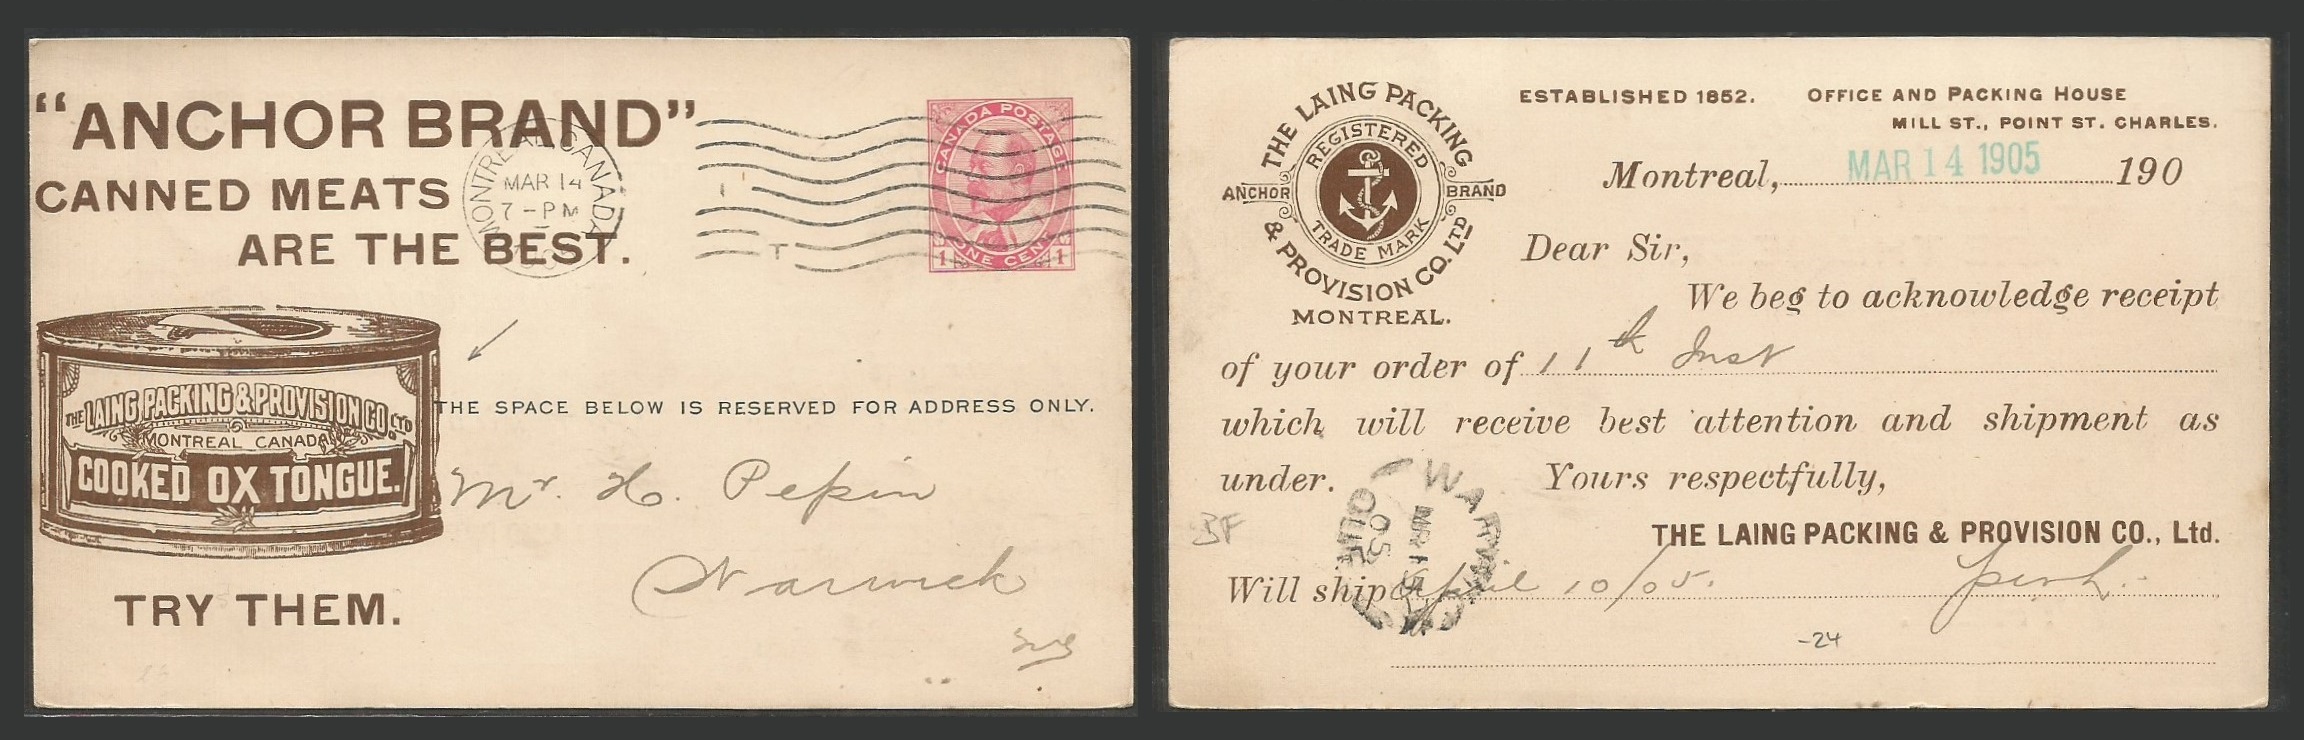 "ANCHOR BRAND"
CANNED MEATS
ARE THE BEST.
MONTREAL CANADA
MAR 14
7-PM
T
CANADA POSTAGE
ONE CENT
1 1
THE LAING PACKING & PROVISION CO LTD
MONTREAL CANADA
COOKED OX TONGUE.
THE SPACE BELOW IS RESERVED FOR ADDRESS ONLY.
Mr. H. Pepin
Warwick
TRY THEM.
THE LAING PACKING
& PROVISION CO. LTD
REGISTERED
TRADE MARK
ANCHOR BRAND
MONTREAL.
ESTABLISHED 1852. OFFICE AND PACKING HOUSE
MILL ST., POINT ST. CHARLES.
Montreal, MAR 14 1905 190
Dear Sir,
We beg to acknowledge receipt
of your order of 11th Inst
which will receive best attention and shipment as
under. Yours respectfully,
WARWICK
QUE
MR 15
05
3F
THE LAING PACKING & PROVISION CO., Ltd.
Will ship April 10/05.
-24